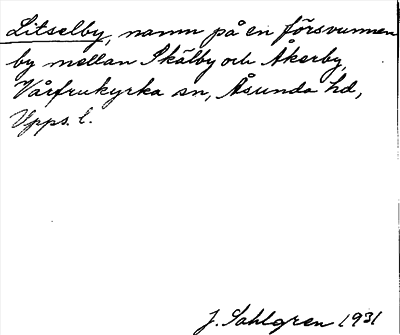 Litselby, namn på en försvunnen
by mellan Skälby och Åkerby,
Vårfrukyrka sn, Åsunda hd,
Upps. l.
J. Sahlgren 1931